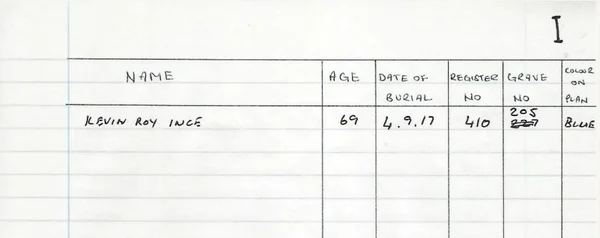 I
NAME AGE DATE OF BURIAL REGISTER NO GRAVE NO COLOUR ON PLAN
KEVIN ROY INCE 69 4.9.17 410 205 227 BLUE